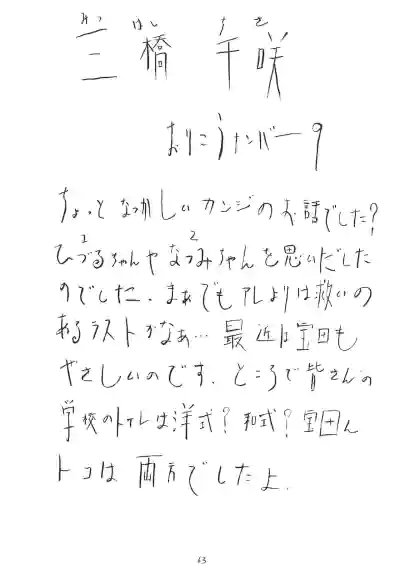 みつ はし ちさ
三橋 千咲
おりこうナンバー9
ちょっとなつかしいカンジのお話でした?
1 2
ひづるちゃんやなつみちゃんを思いだした
のでした。まぁでもアレよりは救いの
あるラストかなぁ…最近は宝田も
やさしいのです。ところで皆さんの
学校のトイレは洋式?和式?宝田ん
トコは両方でしたよ.
63